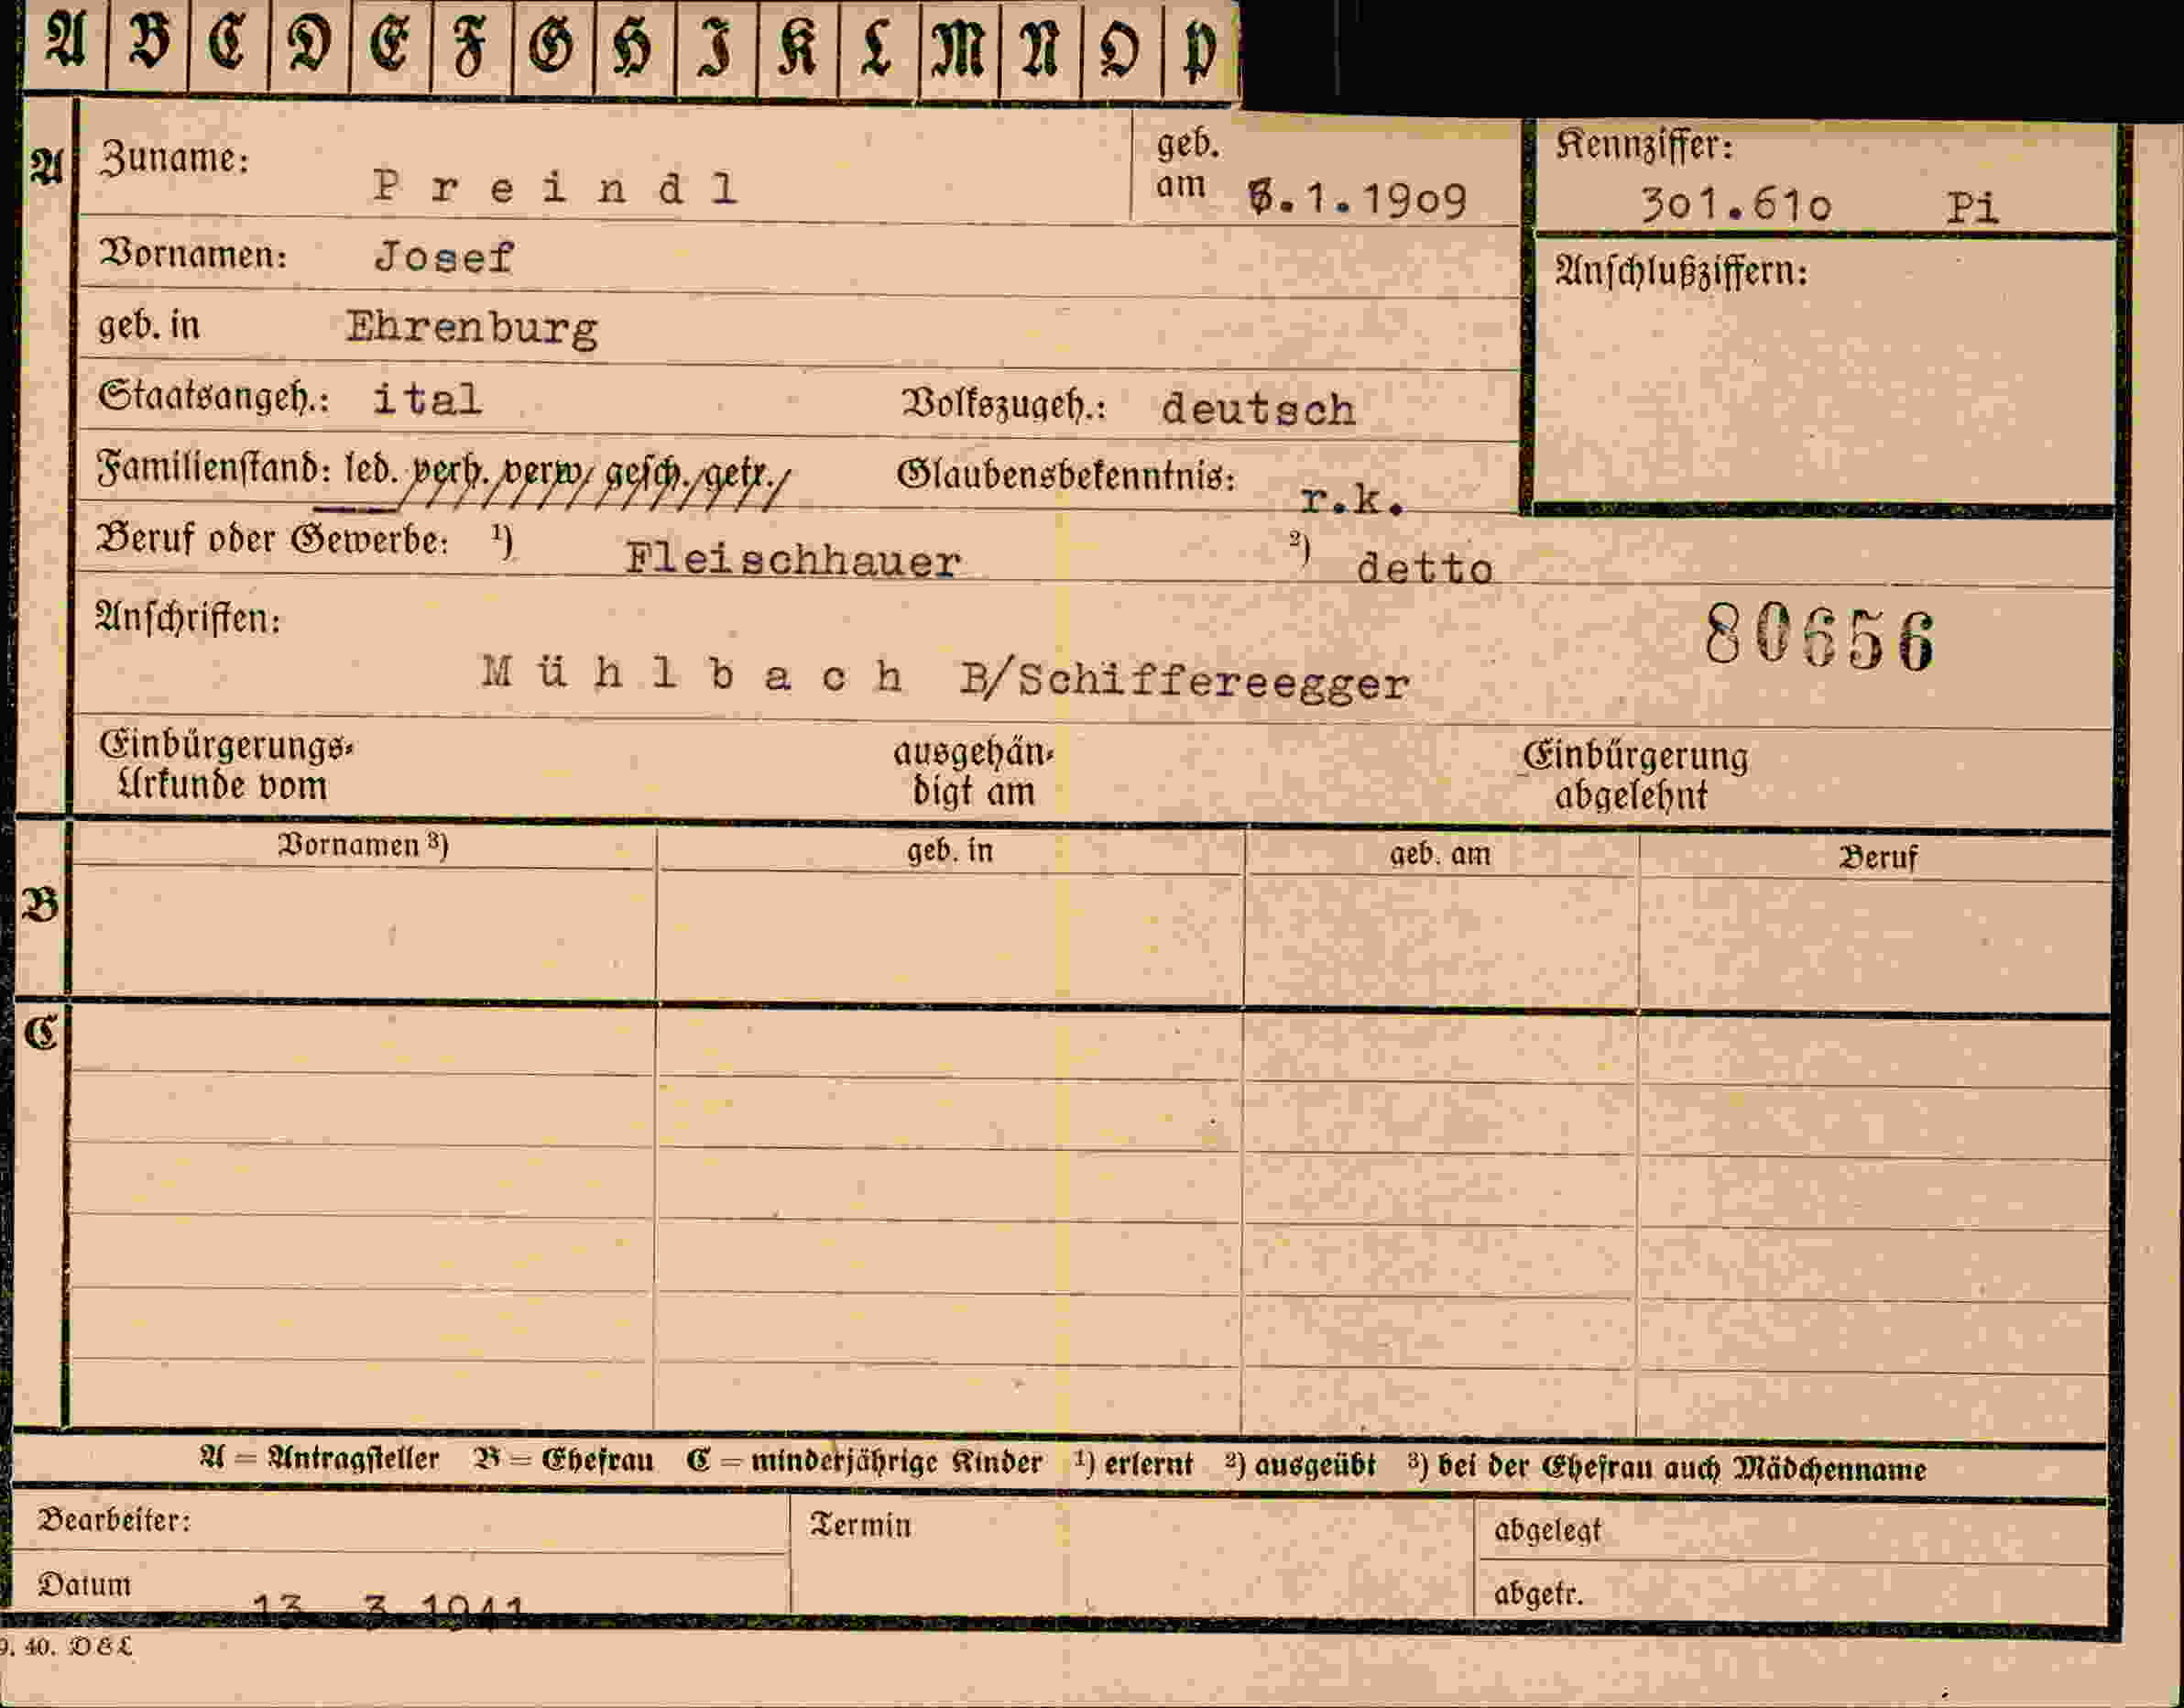 A B C D E F G H I K L M N O P
A
Zuname: Preindl
geb. am .1.1909
Kennziffer: 301.610 Pi
Vornamen: Josef
Anschlußziffern:
geb. in Ehrenburg
Staatsangeh.: ital Volkszugeh.: deutsch
Familienstand: led. verh. verw. gesch. getr. Glaubensbekenntnis: r.k.
Beruf oder Gewerbe: ¹) Fleischhauer ²) detto
Anschriften:
80656
Mühlbach B/Schiffereegger
Einbürgerungs-Urkunde vom ausgehän-digt am Einbürgerung abgelehnt
Vornamen ³) geb. in geb. am Beruf
B
C
A = Antragsteller B = Ehefrau C = minderjährige Kinder ¹) erlernt ²) ausgeübt ³) bei der Ehefrau auch Mädchenname
Bearbeiter: Termin abgelegt
Datum 13. 3.1941 abgetr.
9. 40. DEL